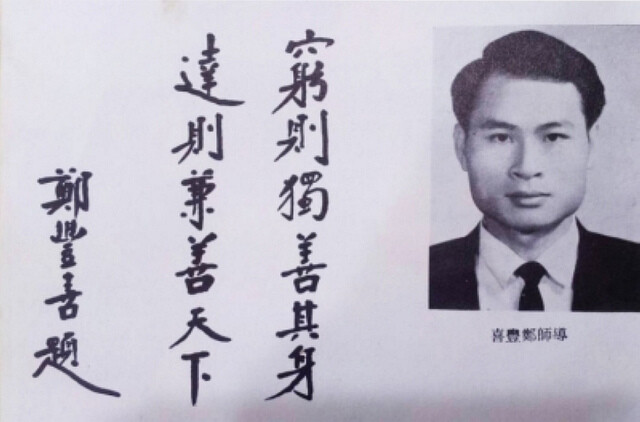 導師鄭豐喜
窮則獨善其身
達則兼善天下
鄭豐喜題